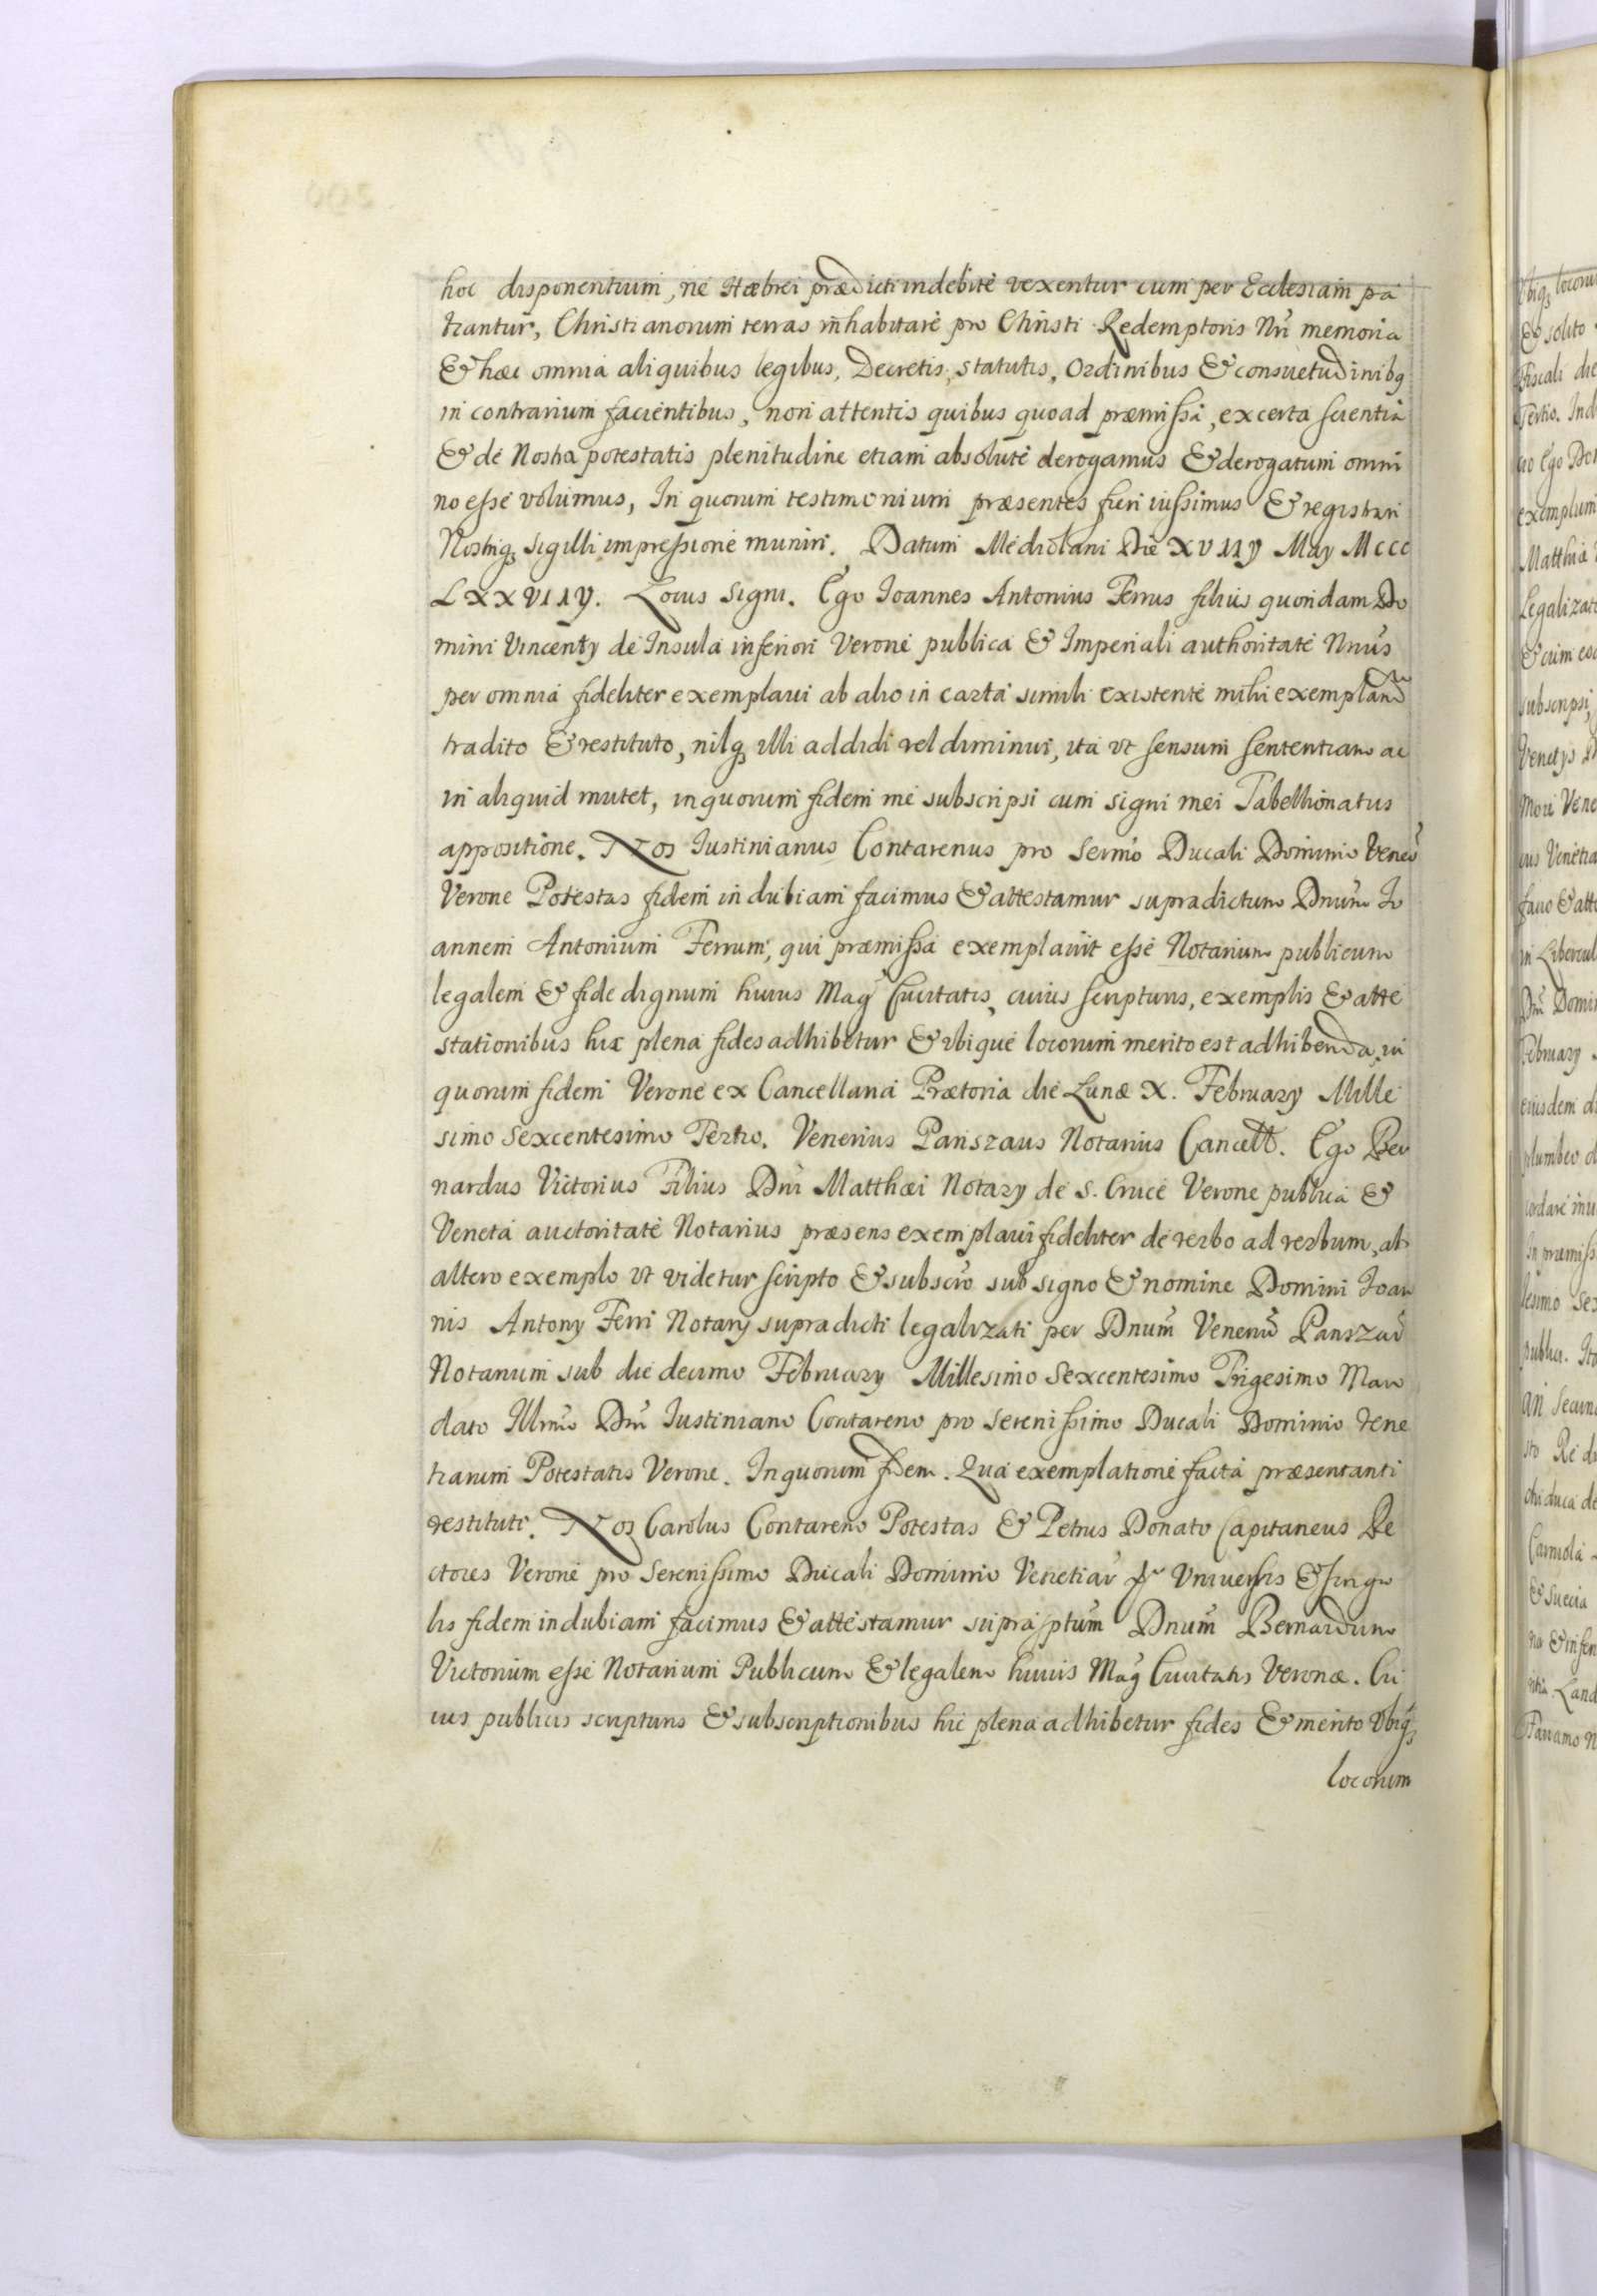 hoc disponentium, ne Hæbrei prædicti indebite vexentur cum per Ecclesiam pa
tiantur, Christianorum terras inhabitare pro Christi Redemptoris Nri memoria
& hæc omnia aliquibus legibus, Decretis, statutis, Ordinibus & consuetudinibq
in contrarium facientibus, non attentis quibus quoad præmissa, ex certa scientia
& de Nostra potestatis plenitudine etiam absolute derogamus & derogatum omni
no esse volumus, In quorum testimonium præsentes fieri iussimus & registrari
Nostriq; sigilli impressione muniri. Datum Mediolani Die XVIIY May MCCC
LXXVIIY. Locus Signi. Ego Joannes Antonius Ferrus filius quondam Do
mini Vincenty de Insula inferiori Verone publica & Imperiali authoritate Nnus
per omnia fideliter exemplaui ab alio in carta simili existente mihi exempland
tradito & restituto, nilq; illi addidi vel diminui, ita vt sensum sententiam ac
in aliquid mutet, in quorum fidem me subscripsi cum signi mei Tabellionatus
appositione. Nos Justinianus Contarenus pro Sermo Ducali Dominio Venet
Verone Potestas fidem indubiam facimus & attestamur supradictum Dnum Jo
annem Antonium Ferrum, qui præmissa exemplauit esse Notarium publicum
legalem & fide dignum huius Mag Ciuitatis, cuius scripturis, exemplis & atte
stationibus hic plena fides adhibetur & vbique locorum merito est adhibenda, in
quorum fidem Verone ex Cancellaria Prætoria die Lunæ X. February Mille
simo Sexcentesimo Tertio. Venerius Pariszaus Notarius Cancell. Ego Ber
nardus Victorius Filius Dni Matthæi Notary de S. Cruce Verone publica &
Veneta auctoritate Notarius præsens exemplaui fideliter de verbo ad verbum, ab
altero exemplo vt videtur scripto & subscro sub signo & nomine Domini Joan
nis Antony Ferri Notary supradicti legalizati per Dnum Veneriu Pariszau
Notarium sub die decimo February Millesimo Sexcentesimo Trigesimo Man
dato Illmo Dni Justiniano Contareno pro Serenissimo Ducali Dominio Vene
tiarum Potestatis Verone. In quorum fidem. Qua exemplatione facta præsentanti
restituti. Nos Carolus Contareno Potestas & Petrus Donato Capitaneus Re
ctores Verone pro Serenissimo Ducali Dominio Venetiar Vniuersis & singu
lis fidem indubiam facimus & attestamur suprasptum Dnum Bernardum
Victorium esse Notarium Publicum & legalem huius Mag Ciuitatis Veronæ. Cu
ius publicis scripturis & subscriptionibus hic plena adhibetur fides & merito vbiq;
locorum